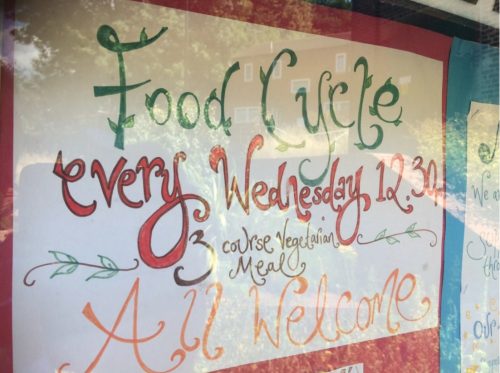 Food Cycle
every Wednesday 12.30
3 course Vegetarian
Meal
All Welcome